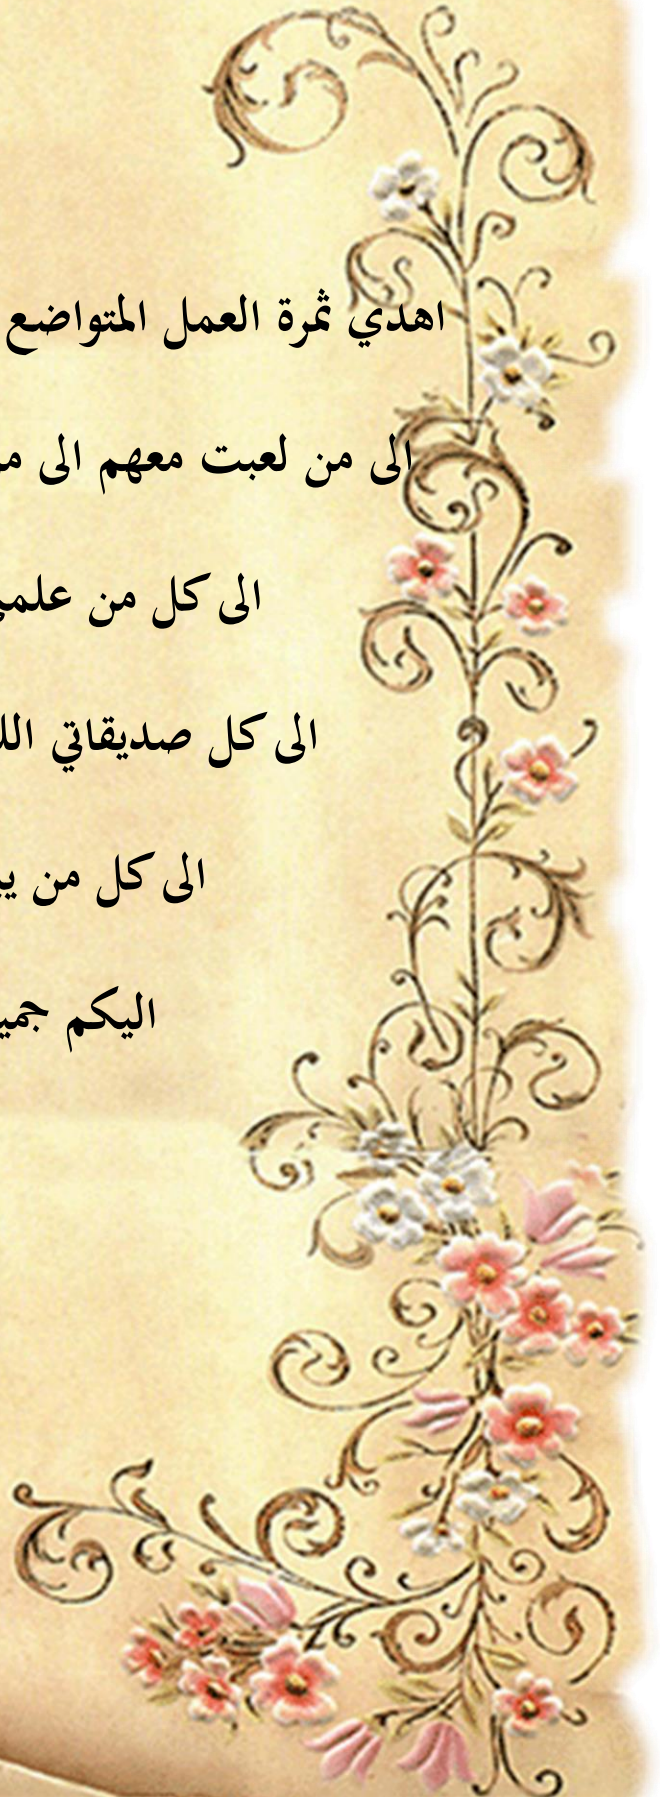 اهدي ثمرة العمل المتواضع
الى من لعبت معهم الى
الى كل من
الى كل صديقاتي
الى كل من
اليكم